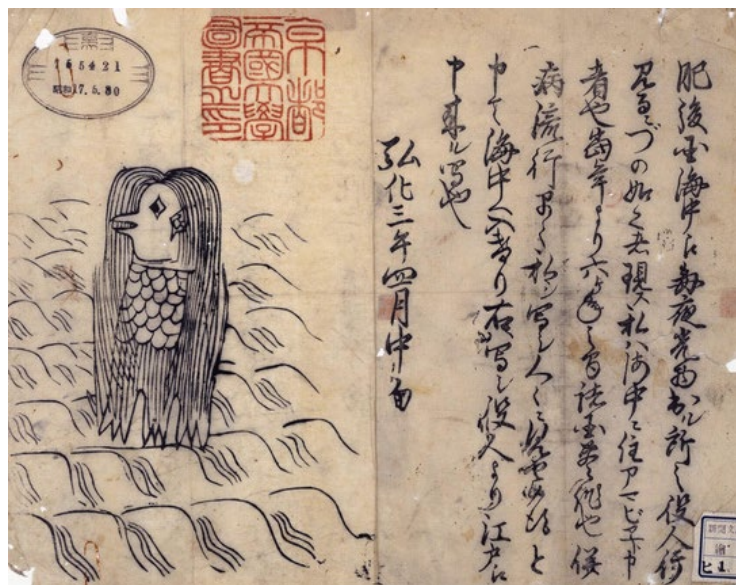 肥後国海中え毎夜光物出ル所之役人行
見るニづの如く之者現ス私ハ海中ニ住アマビヱト申
者也当年より六ヶ年之間諸国豊作也併
病流行早々私ヲ写シ人々ニ見せ候得と
申て海中へ入けり右写シ役人より江戸え
申来ル写也
弘化三年四月中旬
京都
帝國大學
圖書之印
昭和17.5.30